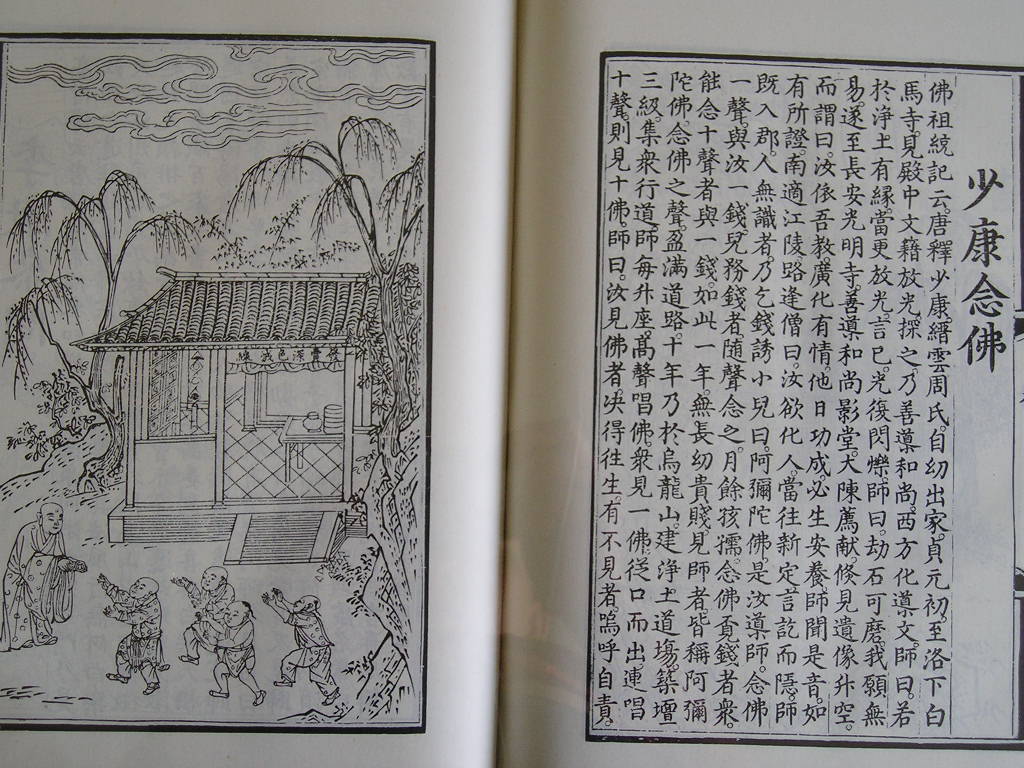 少康念佛
佛祖統記云唐釋少康縉雲周氏。自幼出家。貞元初。至洛下白
馬寺。見殿中文籍放光。探之乃善導和尚。西方化導文。師曰。若
於淨土有緣。當更放光。言已。光復閃爍。師曰。劫石可磨。我願無
易。遂至長安光明寺。善導和尚影堂。大陳薦献。倏見遺像升空。
而謂曰。汝依吾教。廣化有情。他日功成。必生安養。師聞是音。如
有所證。南適江陵。路逢僧曰。汝欲化人。當往新定。言訖而隱。師
既入郡。人無識者。乃乞錢誘小兒曰。阿彌陀佛。是汝導師。念佛
一聲。與汝一錢。兒務錢者。隨聲念之。月餘孩孺。念佛貢錢者衆。
能念十聲者。與一錢。如此一年。無長幼貴賤。見師者。皆稱阿彌
陀佛。念佛之聲。盈滿道路。十年乃於烏龍山。建淨土道場。築壇
三級。集衆行道。師每升座。高聲唱佛。衆見一佛。從口而出。連唱
十聲。則見十佛。師曰。汝見佛者。决得往生。有不見者。嗚呼自責。